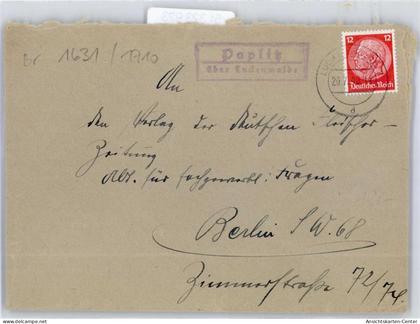 br 1631/1710
Paplitz
über Luckenwalde
12 12
Deutsches Reich
An
den Verlag der Deutschen Fleischer-
Zeitung
Abt. für fachgewerbl: Fragen
Berlin S.W. 68
Zimmerstraße 72/74.
www.ansichtskartenversand.com
Ansichtskarten-Center